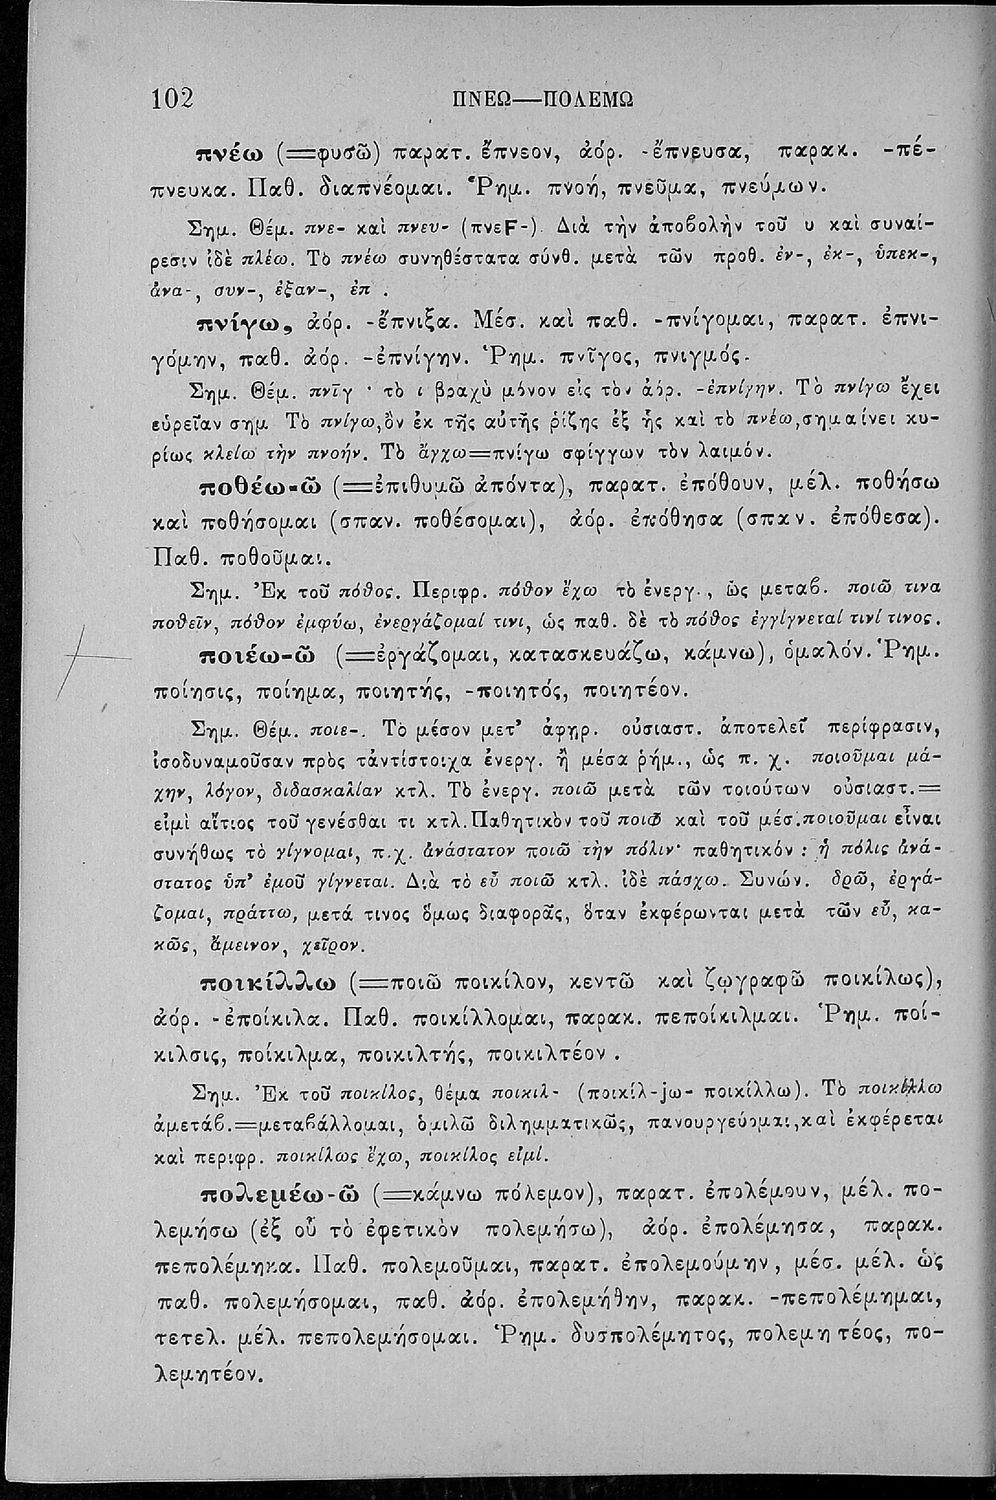 102 ΠΝΕΩ—ΠΟΛΕΜΩ
πνέω (=φυσῶ) παρατ. ἔπνεον, ἀόρ. -ἔπνευσα, παρακ. -πέ-
πνευκα. Παθ. διαπνέομαι. Ῥημ. πνοή, πνεῦμα, πνεύμων.
Σημ. Θέμ. πνε- καὶ πνευ- (πνεF-) Διὰ τὴν ἀποβολὴν τοῦ υ καὶ συναί-
ρεσιν ἰδὲ πλέω. Τὸ πνέω συνηθέστατα σύνθ. μετὰ τῶν προθ. ἐν-, ἐκ-, ὑπεκ-,
ἀνα-, συν-, ἐξαν-, ἐπ .
πνίγω, ἀόρ. -ἔπνιξα. Μέσ. καὶ παθ. -πνίγομαι, παρατ. ἐπνι-
γόμην, παθ. ἀόρ. -ἐπνίγην. Ῥημ. πνῖγος, πνιγμός.
Σημ. Θέμ. πνῑγ · τὸ ι βραχὺ μόνον εἰς τὸν ἀόρ. -ἐπνίγην. Τὸ πνίγω ἔχει
εὑρεῖαν σημ. Τὸ πνίγω, ὂν ἐκ τῆς αὐτῆς ῥίζης ἐξ ἧς καὶ τὸ πνέω, σημαίνει κυ-
ρίως κλείω τὴν πνοήν. Τὸ ἄγχω=πνίγω σφίγγων τὸν λαιμόν.
ποθέω-ῶ (=ἐπιθυμῶ ἀπόντα), παρατ. ἐπόθουν, μέλ. ποθήσω
καὶ ποθήσομαι (σπαν. ποθέσομαι), ἀόρ. ἐπόθησα (σπαν. ἐπόθεσα).
Παθ. ποθοῦμαι.
Σημ. Ἐκ τοῦ πόθος. Περιφρ. πόθον ἔχω τὸ ἐνεργ., ὡς μεταβ. ποιῶ τινα
ποθεῖν, πόθον ἐμφύω, ἐνεργάζομαί τινι, ὡς παθ. δὲ τὸ πόθος ἐγγίγνεταί τινί τινος.
ποιέω-ῶ (=ἐργάζομαι, κατασκευάζω, κάμνω), ὁμαλόν. Ῥημ.
ποίησις, ποίημα, ποιητής, -ποιητός, ποιητέον.
Σημ. Θέμ. ποιε-. Τὸ μέσον μετ' ἀφηρ. οὐσιαστ. ἀποτελεῖ περίφρασιν,
ἰσοδυναμοῦσαν πρὸς τἀντίστοιχα ἐνεργ. ἢ μέσα ῥήμ., ὡς π. χ. ποιοῦμαι μά-
χην, λόγον, διδασκαλίαν κτλ. Τὸ ἐνεργ. ποιῶ μετὰ τῶν τοιούτων οὐσιαστ.=
εἰμὶ αἴτιος τοῦ γενέσθαι τι κτλ. Παθητικὸν τοῦ ποιῶ καὶ τοῦ μέσ. ποιοῦμαι εἶναι
συνήθως τὸ γίγνομαι, π.χ. ἀνάστατον ποιῶ τὴν πόλιν· παθητικόν : ἡ πόλις ἀνά-
στατος ὑπ' ἐμοῦ γίγνεται. Διὰ τὸ εὖ ποιῶ κτλ. ἰδὲ πάσχω. Συνών. δρῶ, ἐργά-
ζομαι, πράττω, μετά τινος ὅμως διαφορᾶς, ὅταν ἐκφέρωνται μετὰ τῶν εὖ, κα-
κῶς, ἄμεινον, χεῖρον.
ποικίλλω (=ποιῶ ποικίλον, κεντῶ καὶ ζῳγραφῶ ποικίλως),
ἀόρ. -ἐποίκιλα. Παθ. ποικίλλομαι, παρακ. πεποίκιλμαι. Ῥημ. ποί-
κιλσις, ποίκιλμα, ποικιλτής, ποικιλτέον.
Σημ. Ἐκ τοῦ ποικίλος, θέμα ποικιλ- (ποικίλ-jω- ποικίλλω). Τὸ ποικίλλω
ἀμετάβ.=μεταβάλλομαι, ὁμιλῶ διλημματικῶς, πανουργεύομαι, καὶ ἐκφέρεται
καὶ περιφρ. ποικίλως ἔχω, ποικίλος εἰμί.
πολεμέω-ῶ (=κάμνω πόλεμον), παρατ. ἐπολέμουν, μέλ. πο-
λεμήσω (ἐξ οὗ τὸ ἐφετικὸν πολεμήσω), ἀόρ. ἐπολέμησα, παρακ.
πεπολέμηκα. Παθ. πολεμοῦμαι, παρατ. ἐπολεμούμην, μέσ. μέλ. ὡς
παθ. πολεμήσομαι, παθ. ἀόρ. ἐπολεμήθην, παρακ. -πεπολέμημαι,
τετελ. μέλ. πεπολεμήσομαι. Ῥημ. δυσπολέμητος, πολεμητέος, πο-
λεμητέον.